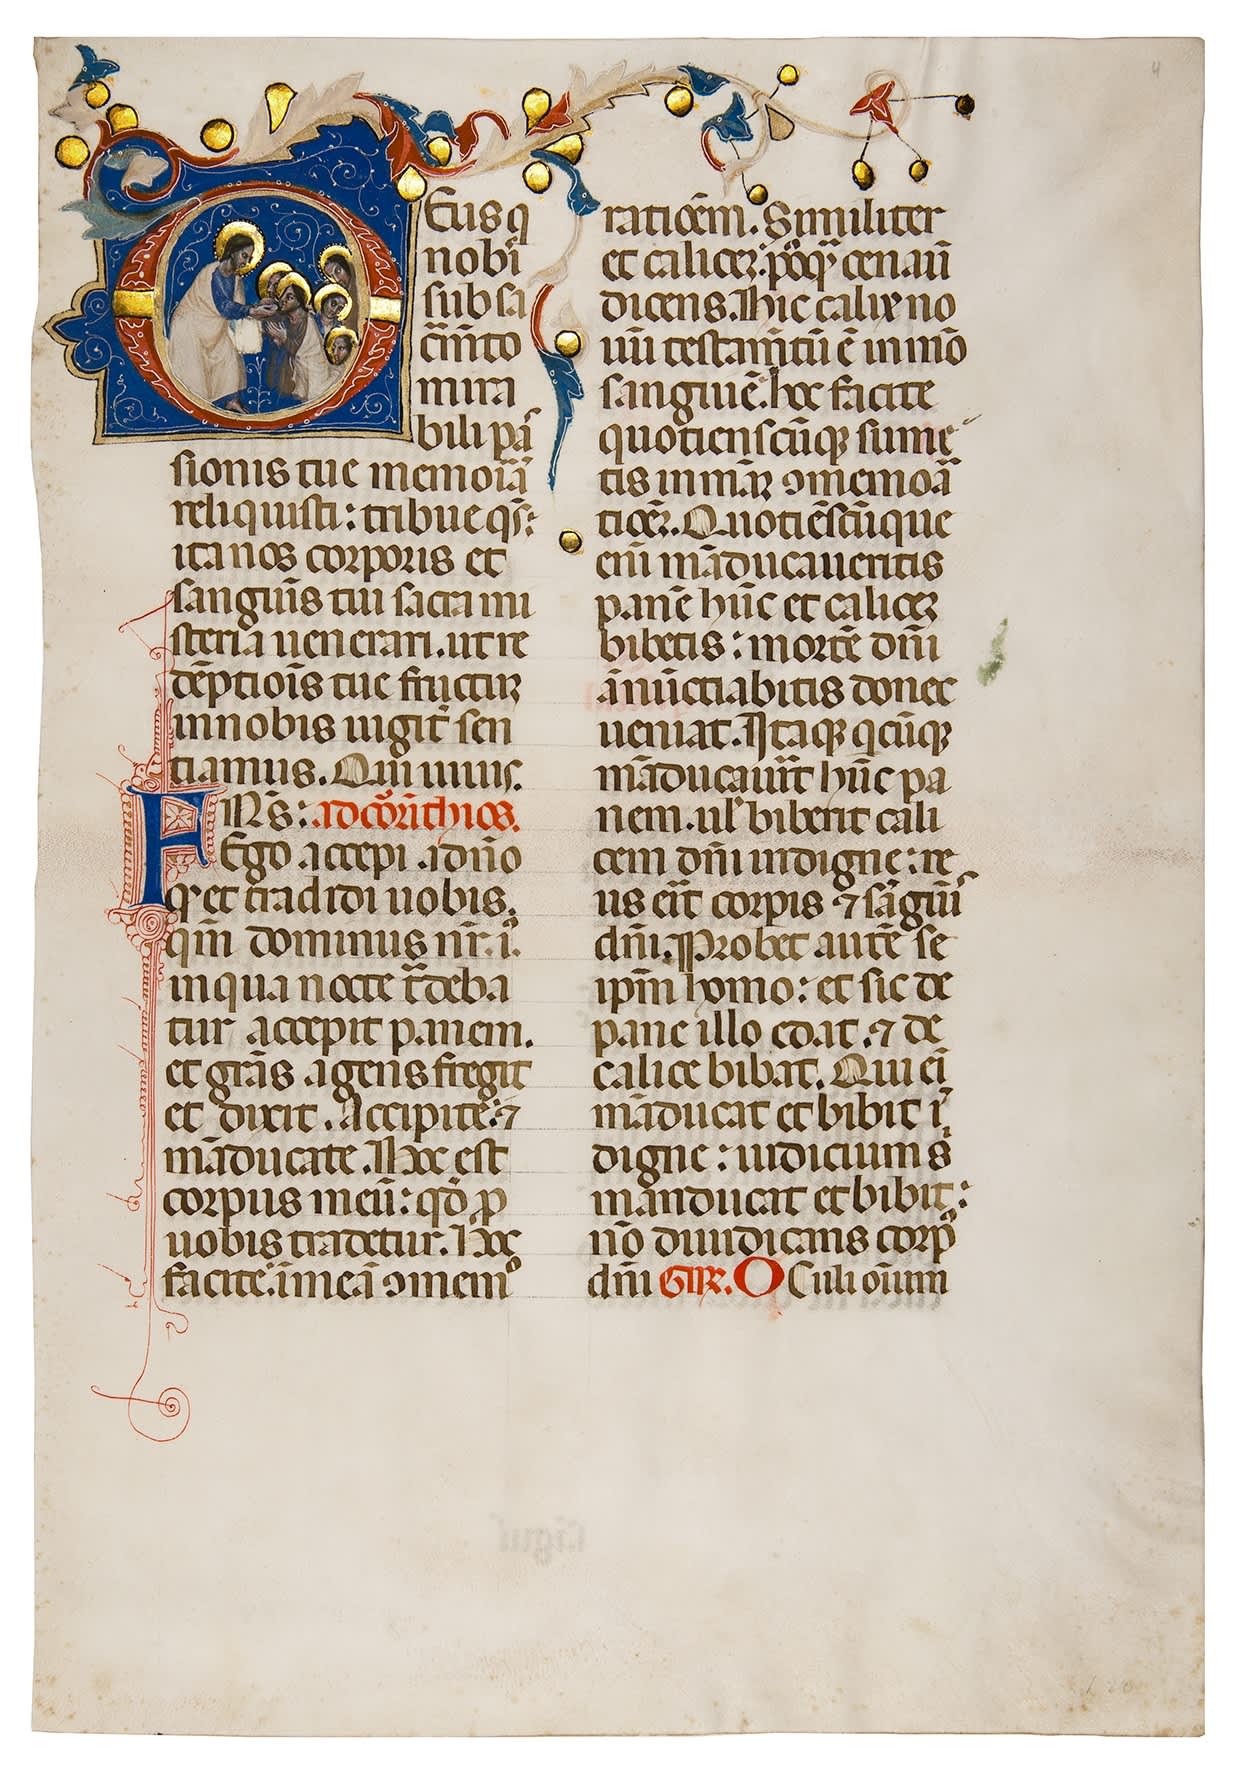 Deus q
nobı̄
sub sa
cͣm̄to
mira
bili pa̅
sionis tue memoꝛiā
reliquisti: tribue q̄s:
ita nos corporis et
sangui̅s tui sacra mi
steria uenerari. ut re
dēptiōis tue fructuꝝ
in nobis uigit̄ sen
tiamus. Qui uiuis.
FRR̄s: ad coꝛı̄thios.
Ego accepi a dn̄o
qͥ et tradidi uobis.
qm̄ dominus nr̄. i.
in qua nocte tͣdeba
tur accepit panem.
et grās agens fregit
et dixit. Accipite: ⁊
māducate. Hoc est
corpus meū: qđ ꝓ
uobis tradetur. Hoc
facite. ī meā ꝯmemo
ratiōem. Similiter
et caliceꝫ: pꝰqͣ cenauı̄
dicens. Hic calix no
uū testam̄tū ē in mō
sanguiē. hoc facite
quotienscūqꝫ sume
tis in mā̄ꝝ ꝯmemoā
ticēꝫ. Quotiēscūque
enı̄ māducaueritis
panē hūc et caliceꝫ
bibetis: mortē dn̄i
ānūctiabitis donec
ueniat. Itaqꝫ qcūqꝫ
māducauit̄ hūc pa
nem. ul̄ biberit cali
cem dn̄i indigne: re
us eit̄ corpis ⁊ sāguis
dn̄i. Probet autē se
ipm̄ homo: et sic de
pane illo edat. ⁊ de
calice bibat. Qui eı̄
māducat et bibit ı̄
digne: iudicium s̄
manducat et bibit:
nō diiudicans corp
dn̄i Gꝛ̄. Oculi oı̄um
4